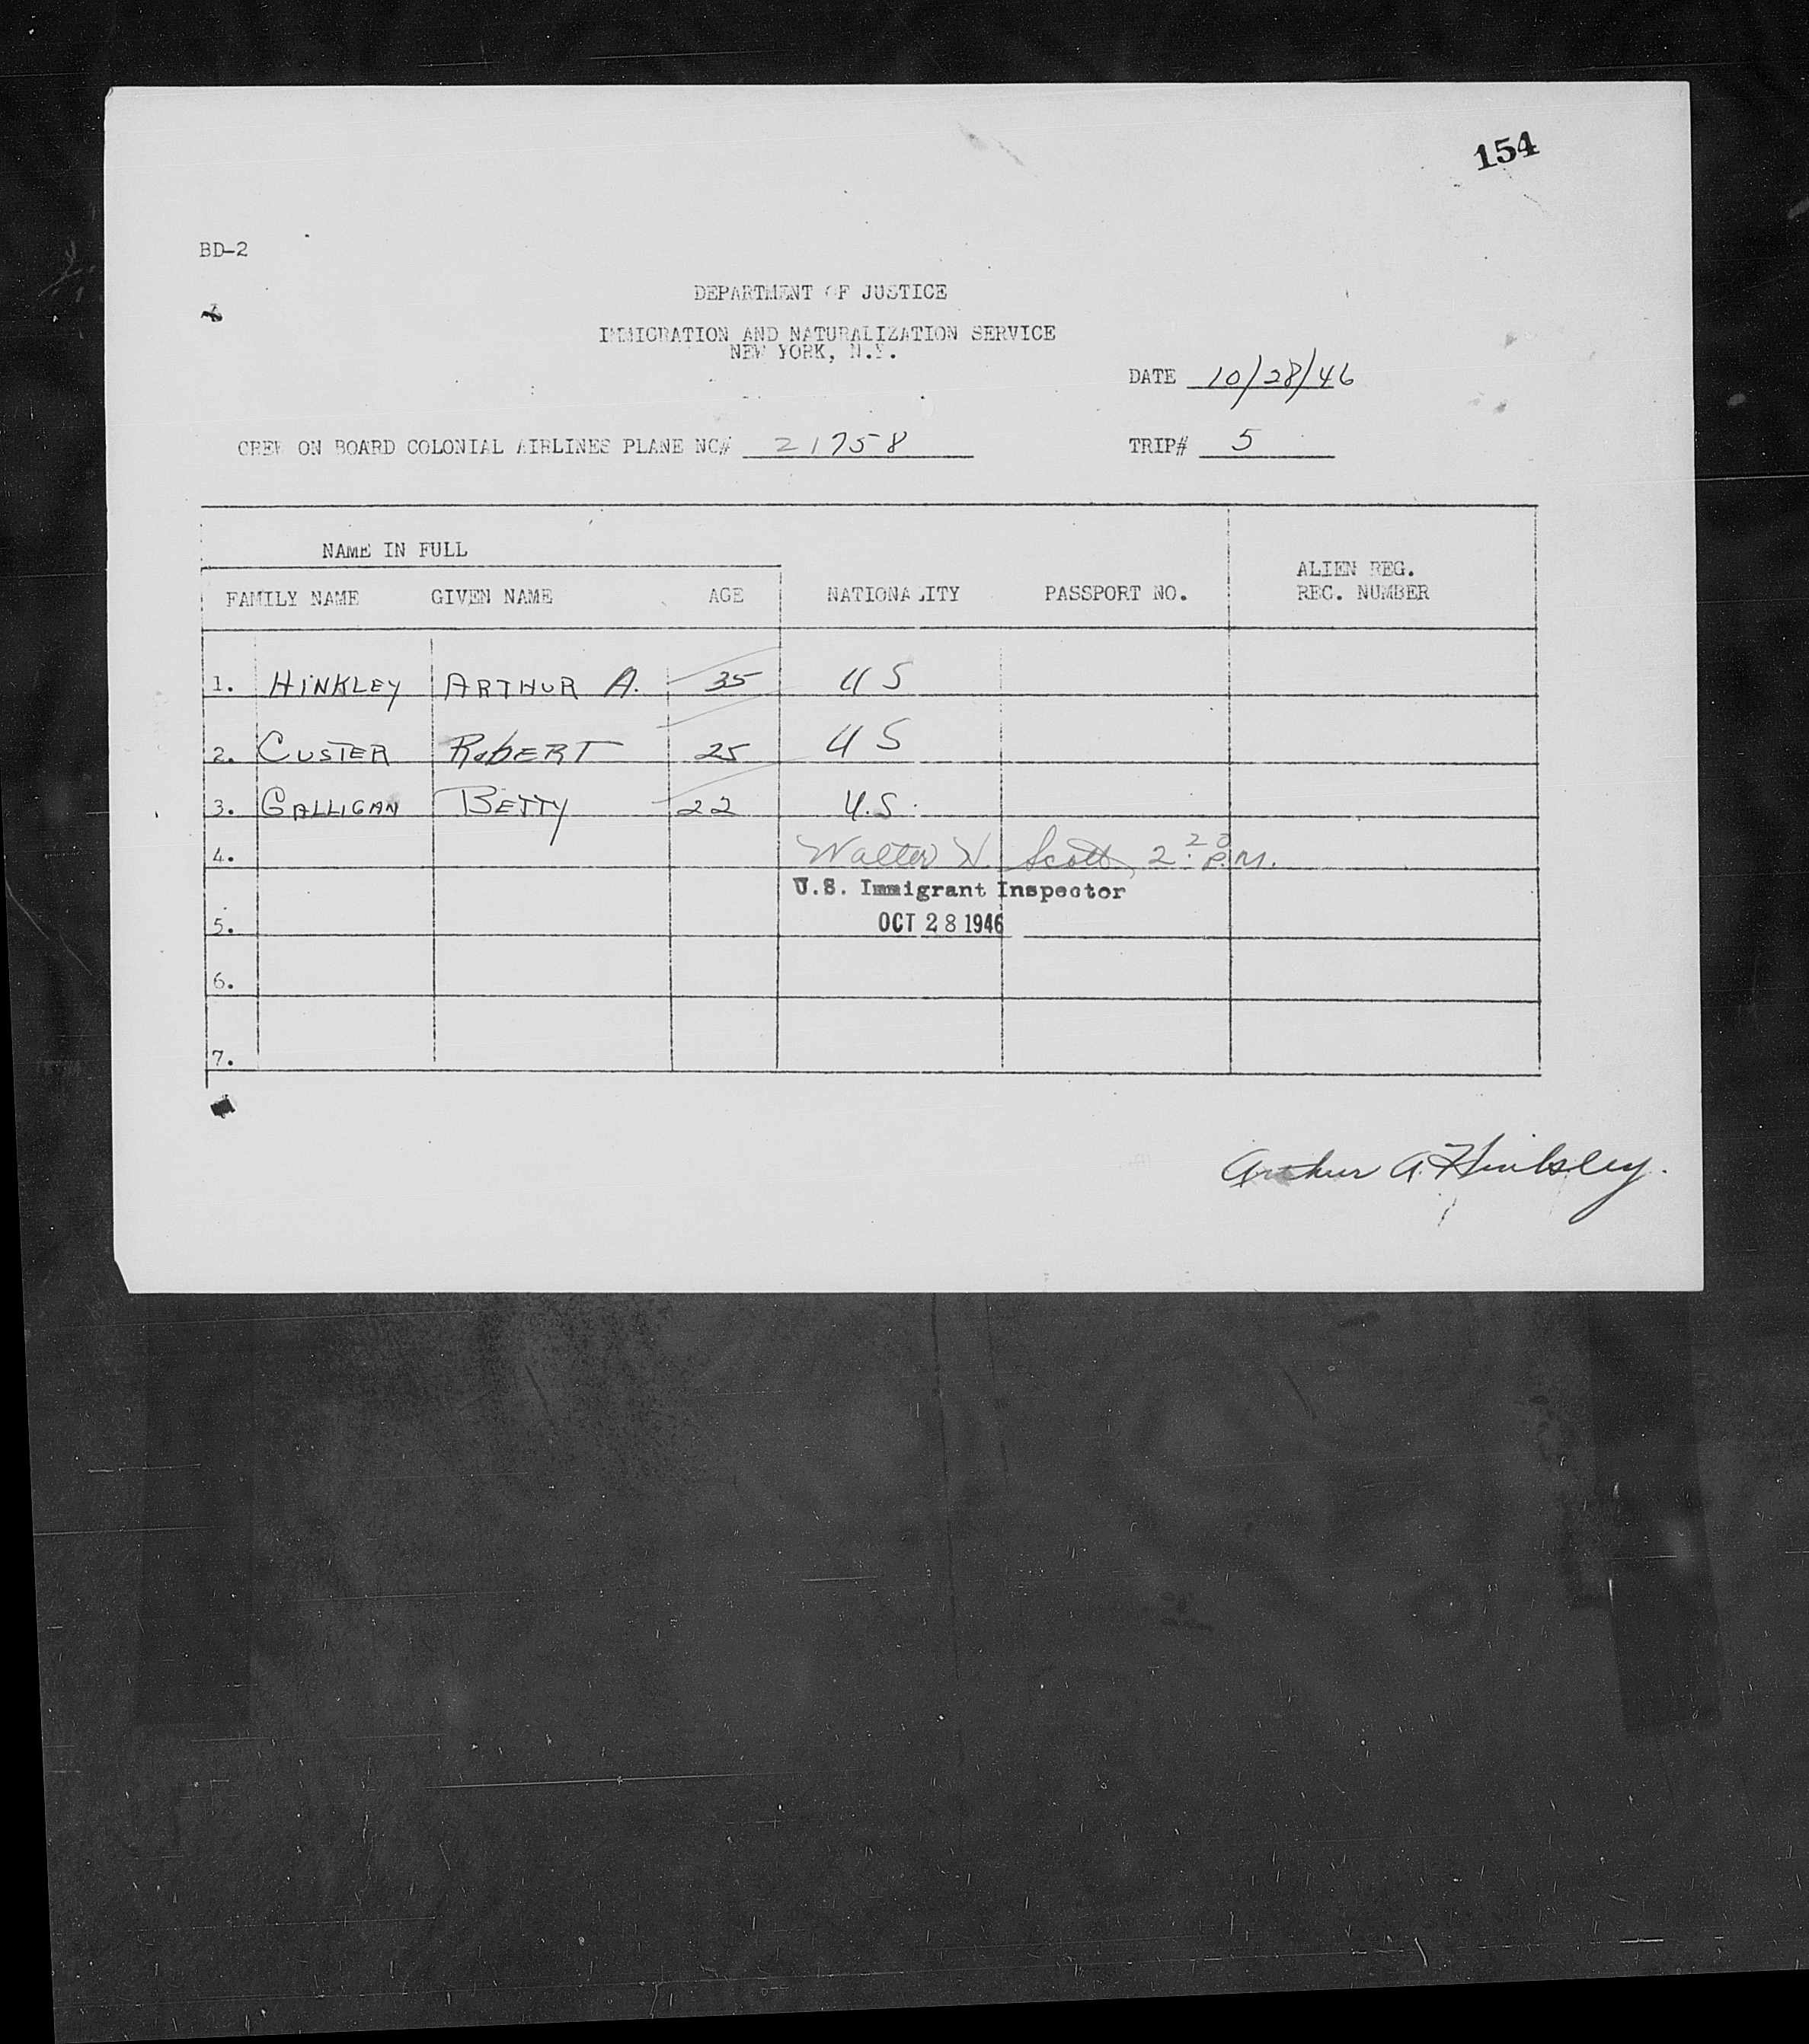 154
BD-2
DEPARTMENT OF JUSTICE
IMMIGRATION AND NATURALIZATION SERVICE
NEW YORK, N.Y.
DATE 10/28/46
CREW ON BOARD COLONIAL AIRLINES PLANE NC# 21758 TRIP# 5
NAME IN FULL
FAMILY NAME GIVEN NAME AGE NATIONALITY PASSPORT NO. ALIEN REG. REC. NUMBER
1. HINKLEY ARTHUR A. 35 US
2. CUSTER ROBERT 25 US
3. GALLIGAN BETTY 22 U.S.
4. Walter N. Scott, 2:20 P.M.
U.S. Immigrant Inspector
5. OCT 28 1946
6.
7.
Arthur A. Hinkley.